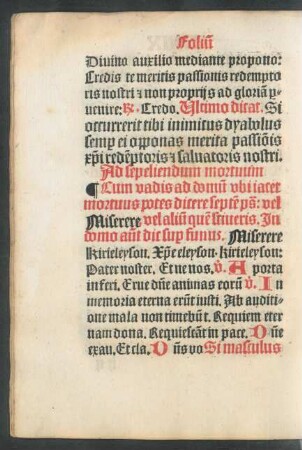 Foliū
Diuino auxilio mediante propono:
Credis te meritis passionis redempto
ris nostri ⁊ non proprijs ad gloriā p̱
uenire: ℟. Credo. Ultimo dicat. Si
occurrerit tibi inimicus dyabolus
semp̱ ei opponas merita passiōis
xp̄i redēptoris ⁊ saluatoris nostri.
Ad sepeliendum mortuum
¶ Cum vadis ad domū vbi iacet
mortuus potes dicere septē ps̄: vel
Miserere vel aliū quē sciueris. In
domo aūt dic sup̱ funus. Miserere
Kirieleyson. Xp̄e eleyson. Kirieleyson:
Pater noster. Et ne nos. ℣. A porta
inferi. Erue dn̄e animas eorū ℣. In
memoria eterna erūt iusti. Ab auditi-
one mala non timebūt. Requiem eter
nam dona. Requiescāt in pace. Dn̄e
exau. Et cla. Dn̄s vo Si masculus